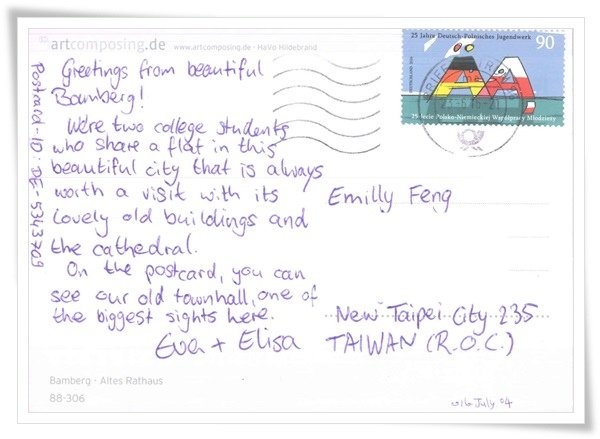 artcomposing.de www.artcomposing.de - HaVo Hildebrand
25 Jahre Deutsch-Polnisches Jugendwerk
90
25-lecie Polsko-Niemieckiej Współpracy Młodzieży
Greetings from beautiful
Bamberg!
We're two college students
who share a flat in this
beautiful city that is always
worth a visit with its
lovely old buildings and
the cathedral.
On the postcard, you can
see our old townhall, one of
the biggest sights here.
Eva + Elisa
Postcard-ID: DE-5343709
Emilly Feng
New Taipei City 235
TAIWAN (R.O.C.)
Bamberg - Altes Rathaus
88-306
July 04